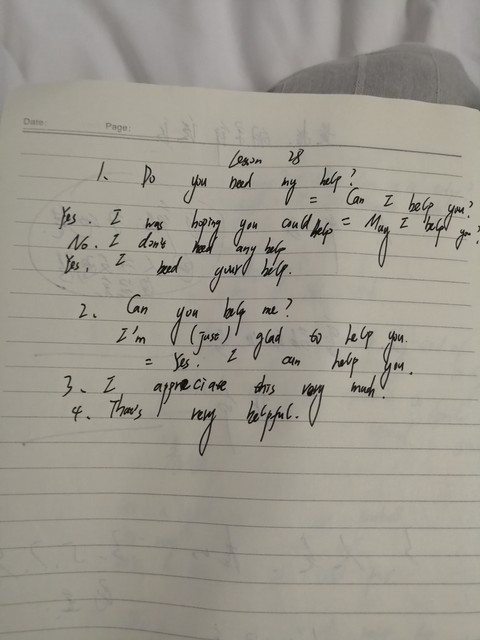 Date:
Page:
Lesson 28
1. Do you need my help?
= Can I help you?
Yes. I was hoping you could help = May I help you?
No. I don't need any help
Yes. I need your help.
2. Can you help me?
I'm (just) glad to help you.
= Yes. I can help you.
3. I appreciate this very much.
4. That's very helpful.